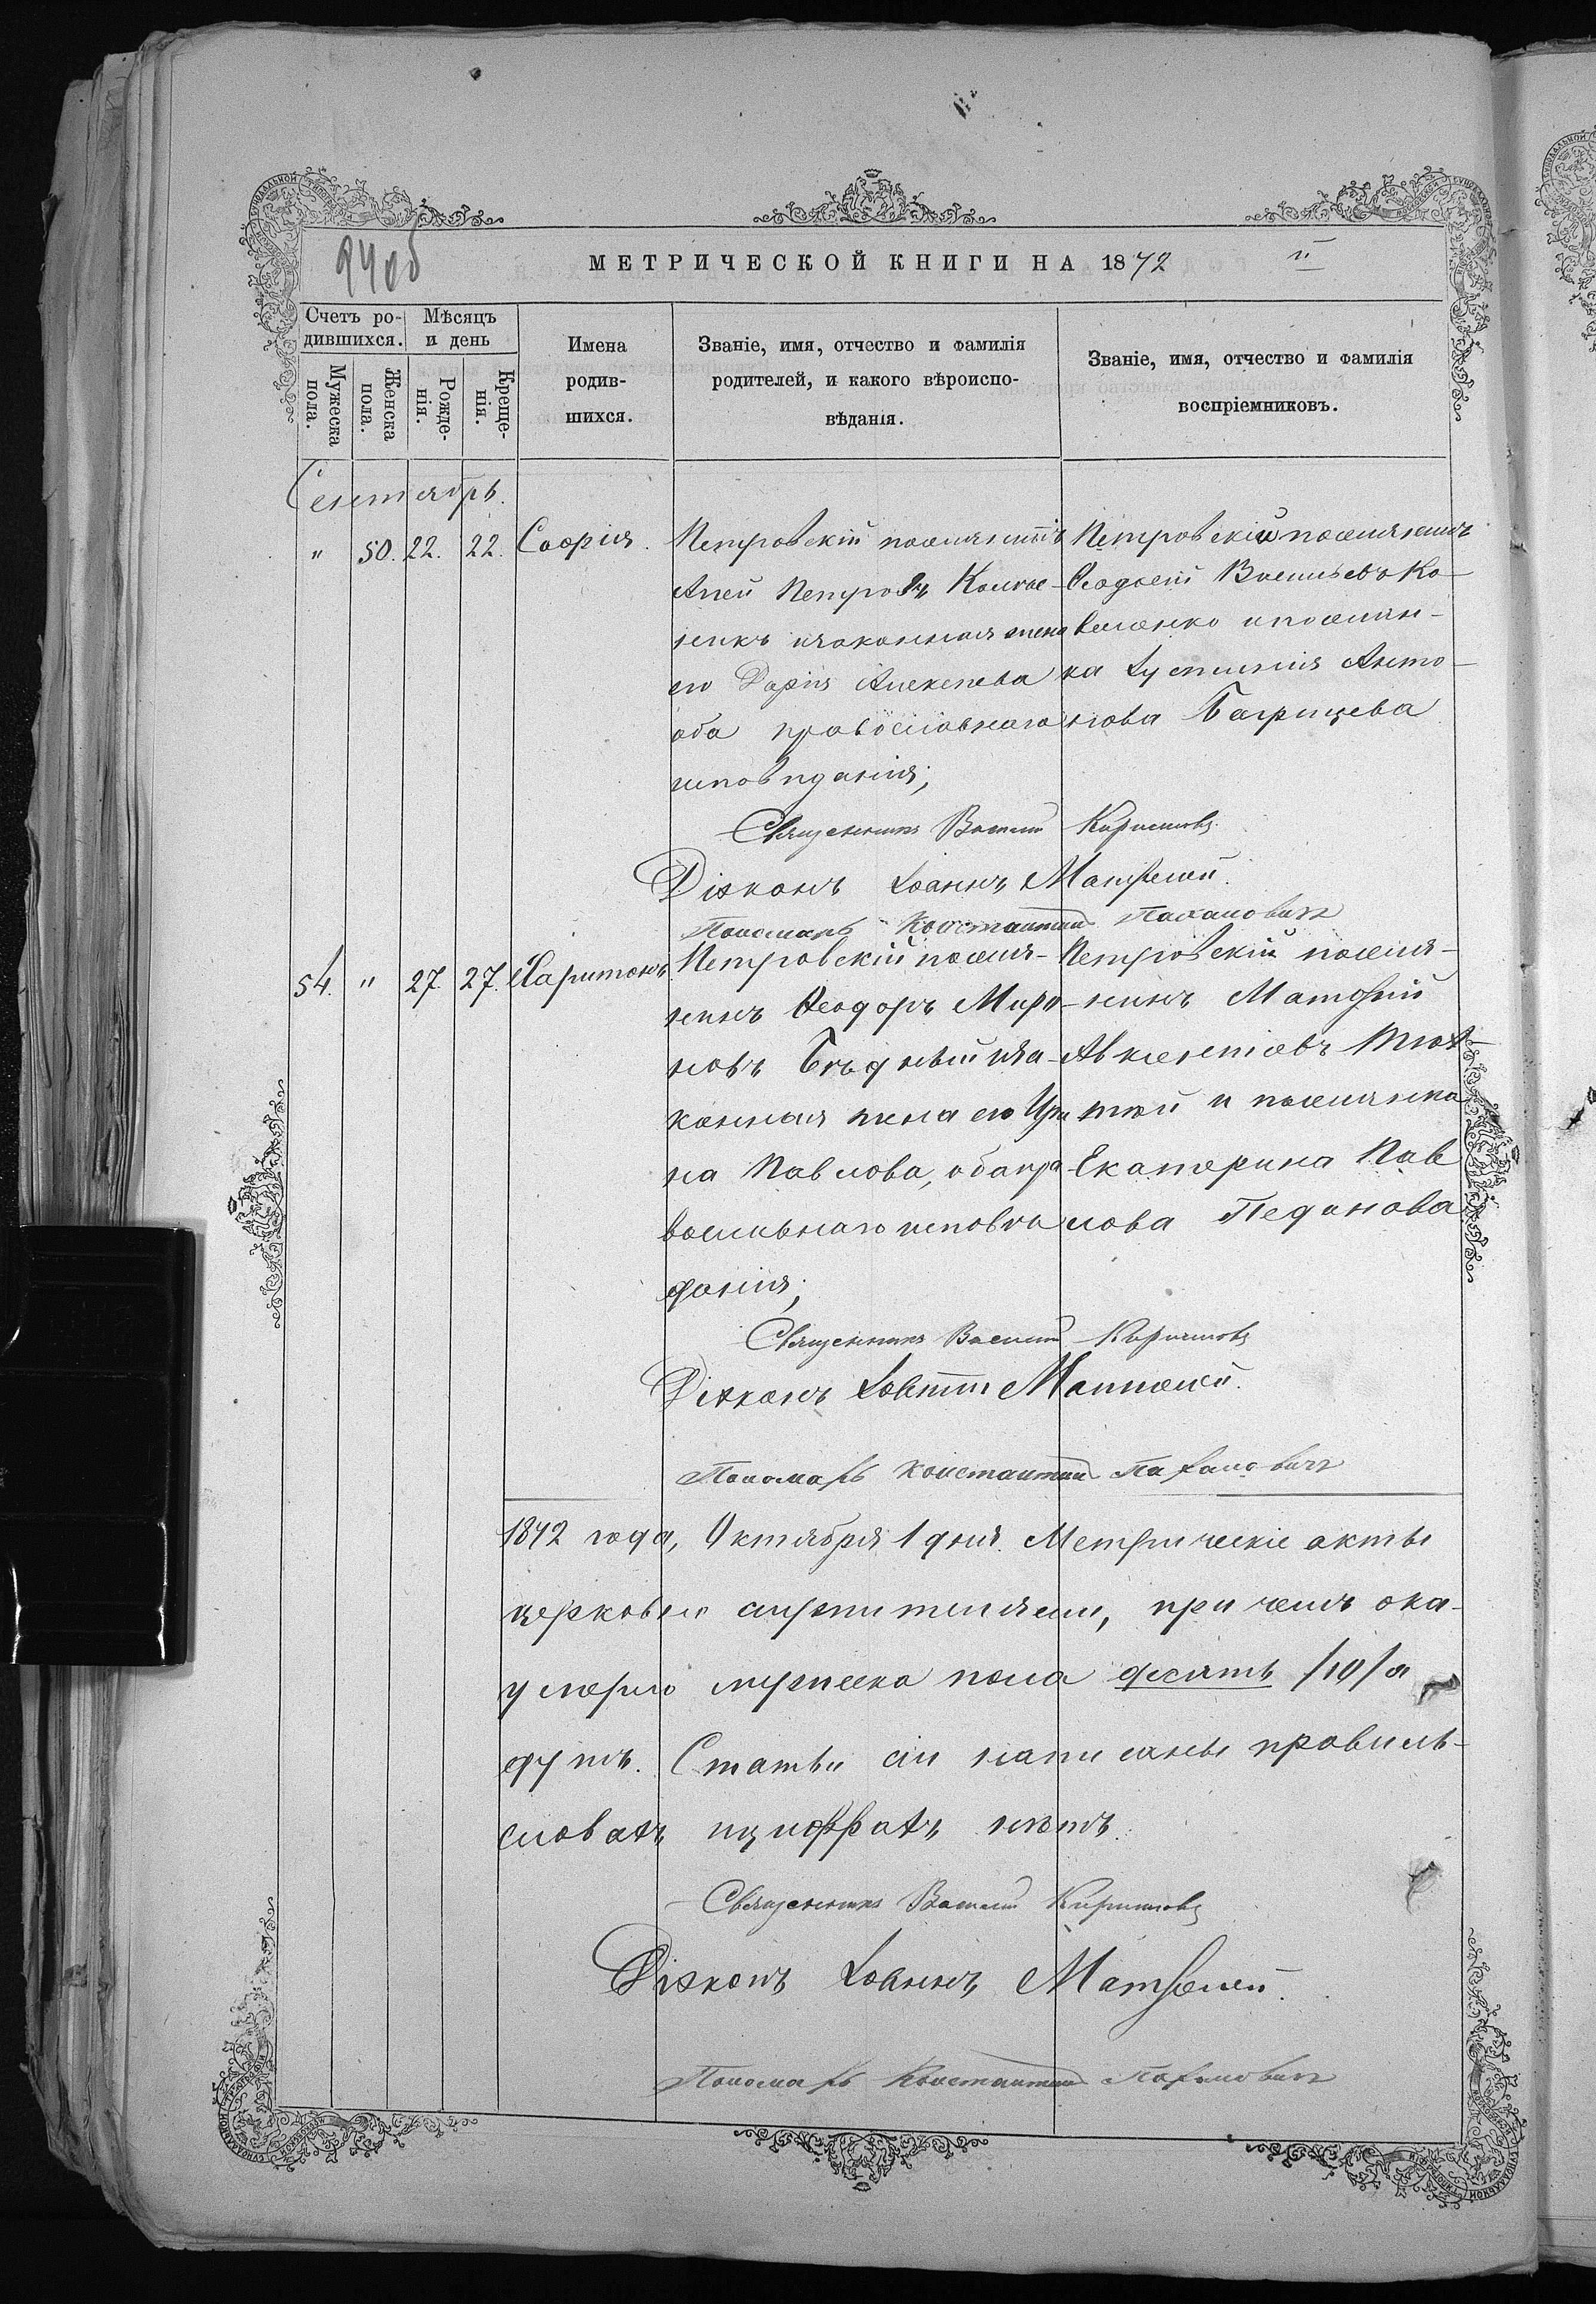 94об
МЕТРИЧЕСКОЙ КНИГИ НА 1872
Счетъ ро-
дившихся.
Мѣсяцъ
и день
Мужеска
пола.
Женска
пола.
Рожде-
нія.
Креще-
нія.
Имена
родив-
шихся.
Званіе, имя, отчество и фамилія
родителей, и какого вѣроиспо-
вѣданія.
Званіе, имя, отчество и фамилія
воспріемниковъ.
Сентябрь.
" 50. 22. 22. Софія.
Петровскій поселянинъ
Петровъ
законная жена
его Дарія Алексѣева
оба православнаго
исповѣданія;
Петровскій поселянинъ
Ѳеодосій Васильевъ Ко-
валенко и поселян-
ка Іустинія Анто-
нова Багрицева
Священникъ Василій Кириловъ
Діяконъ Іоаннъ
Пономарь Константинъ
54. " 27 27. Харитонъ
Петровскій поселя-
нинъ Ѳеодоръ Миро-
новъ Бѣдный и за-
конная жена его Ири
на Павлова, оба пра
вославнаго исповѣ
данія;
Петровскій поселя-
нинъ Матѳій
Авксентіевъ
и поселянка
Екатерина Пав
лова Педанова
Священникъ Василій Кириловъ
Діяконъ Іоаннъ
Пономарь Константинъ
1872 года, Октября 1 дня. Метрическіе акты
церковно служителями, при чемъ ока-
умерло мужеска пола десять /10/ а
дутъ. Статьи сіи написаны правиль-
словахъ и цыфрахъ нѣтъ.
Священникъ Василій Кириловъ
Діяконъ Іоаннъ
Пономарь Константинъ